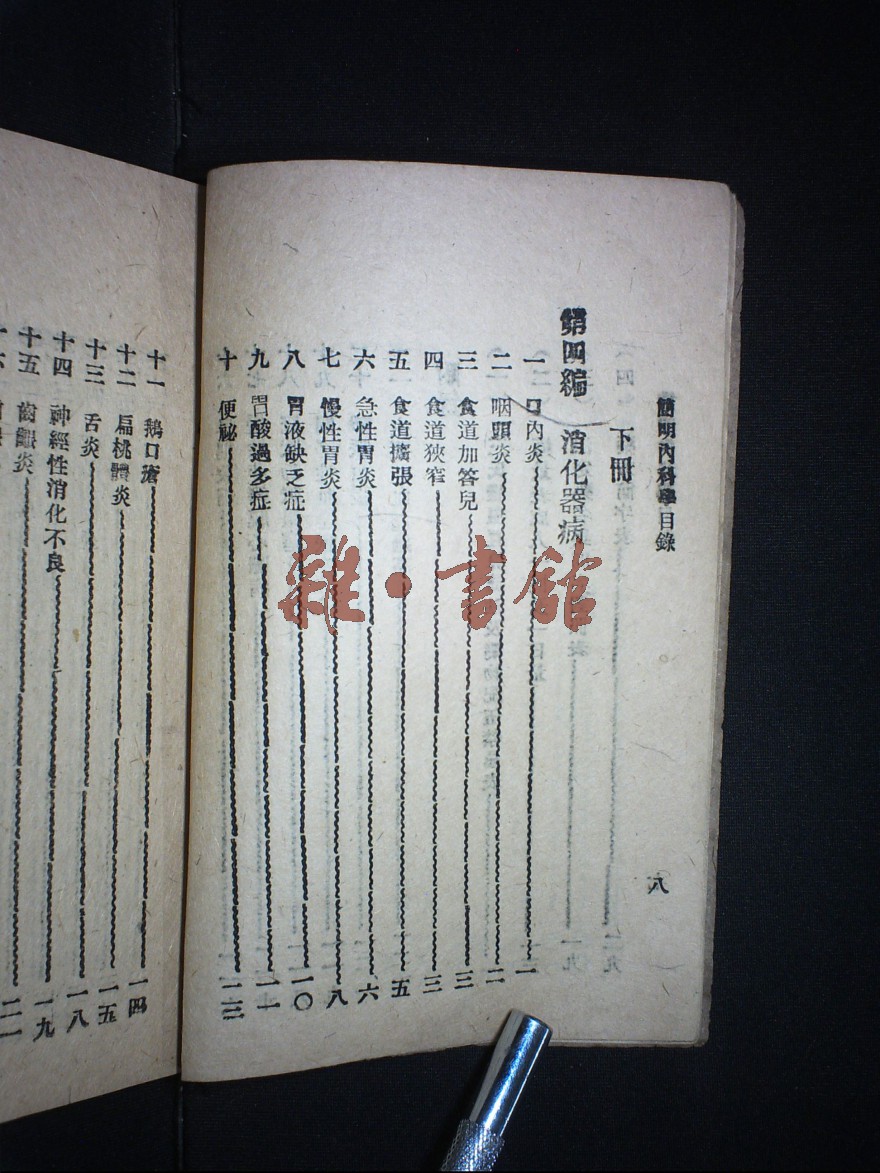 簡明內科學目錄
八
下冊
第四編 消化器病
一 口內炎 一
二 咽頭炎 二
三 食道加答兒 三
四 食道狹窄 三
五 食道擴張 五
六 急性胃炎 六
七 慢性胃炎 八
八 胃液缺乏症 一〇
九 胃酸過多症 一一
十 便祕 一三
十一 鵝口瘡 一四
十二 扁桃體炎 一五
十三 舌炎 一八
十四 神經性消化不良 一九
十五 齒齦炎 二一
十六
雜·書館